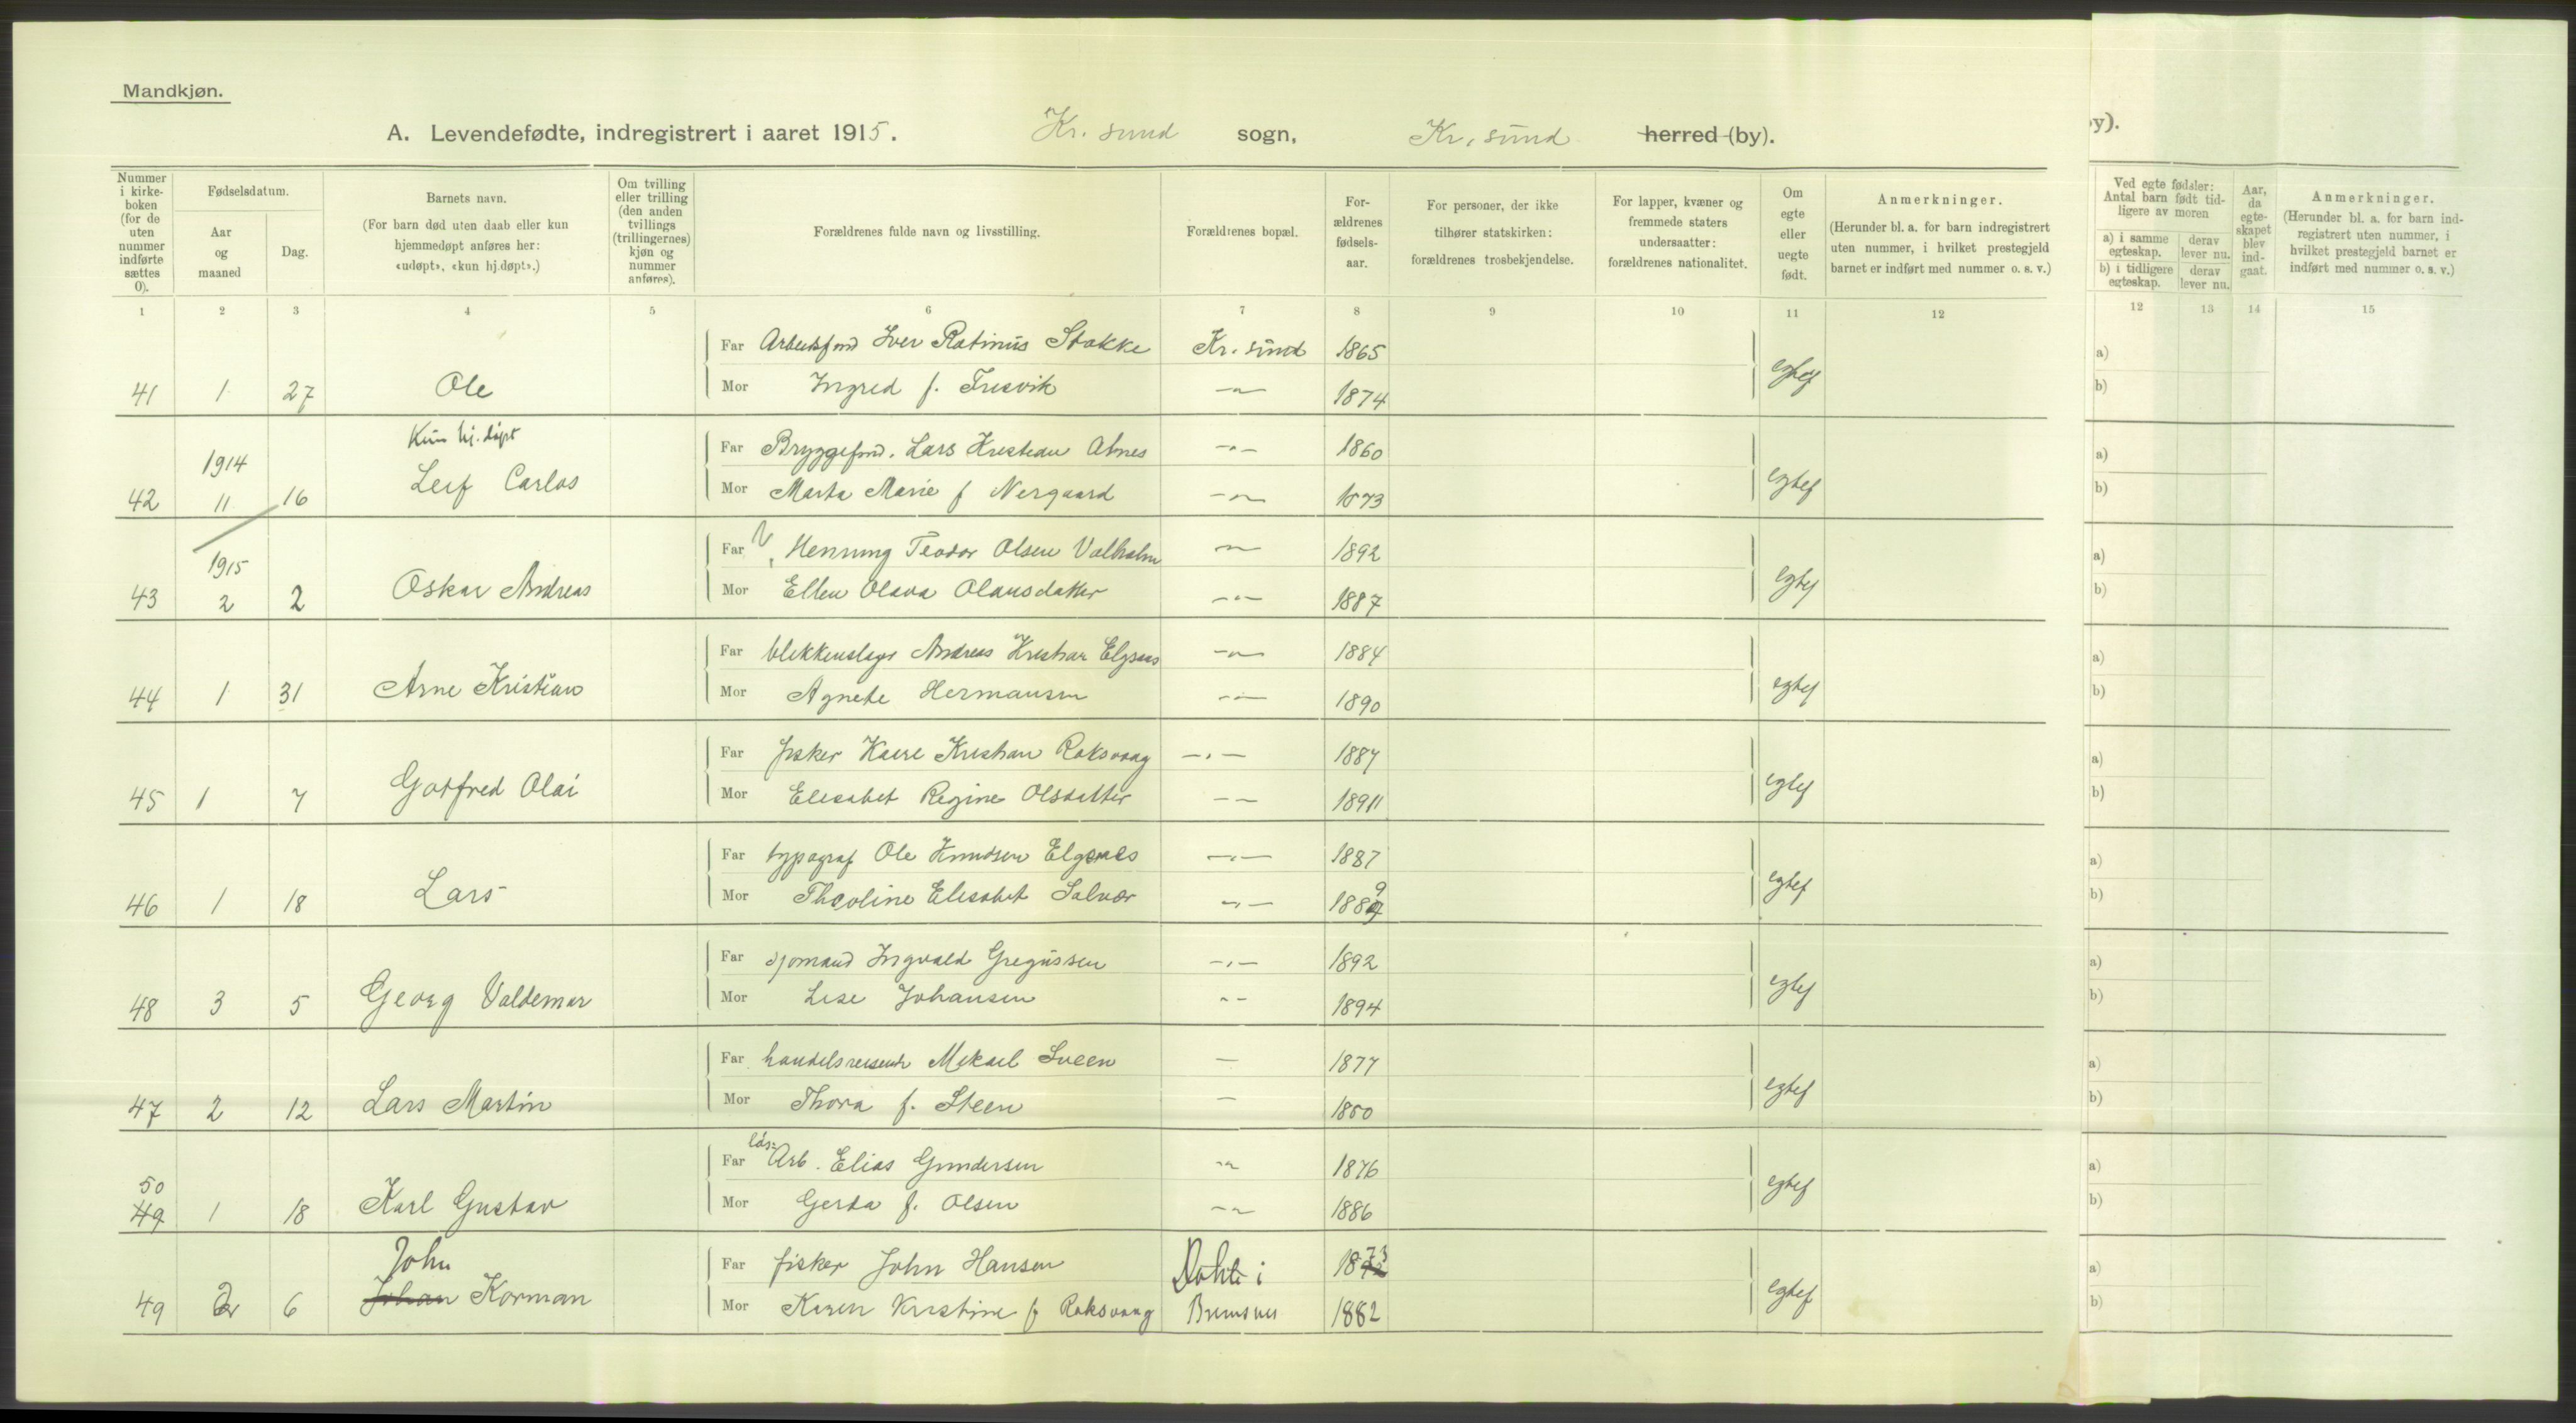 Mandkjøn.
A. Levendefødte, indregistrert i aaret 1915. Kr. sund sogn, Kr. sund herred (by).
by).
Nummer i kirkeboken (for de uten nummer indførte sættes 0).
Fødselsdatum.
Aar og maaned
Dag.
Barnets navn.
(For barn død uten daab eller kun hjemmedøpt anføres her: «udøpt», «kun hj.døpt».)
Om tvilling eller trilling (den anden tvillings (trillingernes) kjøn og nummer anføres).
Forældrenes fulde navn og livsstilling.
Forældrenes bopæl.
Forældrenes fødselsaar.
For personer, der ikke tilhører statskirken: forældrenes trosbekjendelse.
For lapper, kvæner og fremmede staters undersaatter: forældrenes nationalitet.
Om egte eller uegte født.
Anmerkninger.
(Herunder bl. a. for barn indregistrert uten nummer, i hvilket prestegjeld barnet er indført med nummer o. s. v.)
Ved egte fødsler: Antal barn født tidligere av moren
a) i samme egteskap.
derav lever nu.
b) i tidligere egteskap.
derav lever nu.
Aar, da egteskapet blev indgaat.
Anmerkninger.
(Herunder bl. a. for barn indregistrert uten nummer, i hvilket prestegjeld barnet er indført med nummer o. s. v.)
1 2 3 4 5 6 7 8 9 10 11 12 12 13 14 15
Far Arbeidsfmd Iver Ratinus Stokke Kr. sund 1865 a)
41 1 27 Ole Mor Ingred f. Tresvik — 1874 egtef b)
Kun hj. døpt
1914 Far Bryggefmd. Lars Kristian Atnes —"— 1860 a)
42 11 16 Leif Carlos Mor Marta Marie f Nergaard —"— 1873 egtef b)
1915 Far Henning Teodor Olsen Valholm —"— 1892 a)
43 2 2 Oskar Andreas Mor Ellen Olava Olausdatter —"— 1887 egtef b)
Far blikkenslager Andreas Kristian Elgsaas —"— 1884 a)
44 1 31 Arne Kristian Mor Agnete Hermansen —"— 1890 egtef b)
Far fisker Kaere Kristian Roksvaag —"— 1887 a)
45 1 7 Gotfred Olai Mor Elesabet Regine Olsdatter — — 1891 egtef b)
Far typograf Ole Knudsen Elgenes —"— 1887 a)
46 1 18 Lars Mor Theoline Elesabet Salvær —"— 1889 egtef b)
Far sjømand Ingvald Gregussen —"— 1892 a)
48 3 5 Georg Valdemar Mor Lise Johansen "— 1894 egtef b)
Far handelsreisende Mikael Sveen — 1877 a)
47 2 12 Lars Martin Mor Thora f. Steen — 1880 egtef b)
Far løs: Arb. Elias Gundersen —"— 1876 a)
50
49 1 18 Karl Gustav Mor Gerda f. Olsen —"— 1886 egtef b)
John Far fisker John Hansen Dahle i 1873 a)
49 2 6 Johan Korman Mor Karen Kristine f Roksvaag Bremsnes 1882 egtef b)